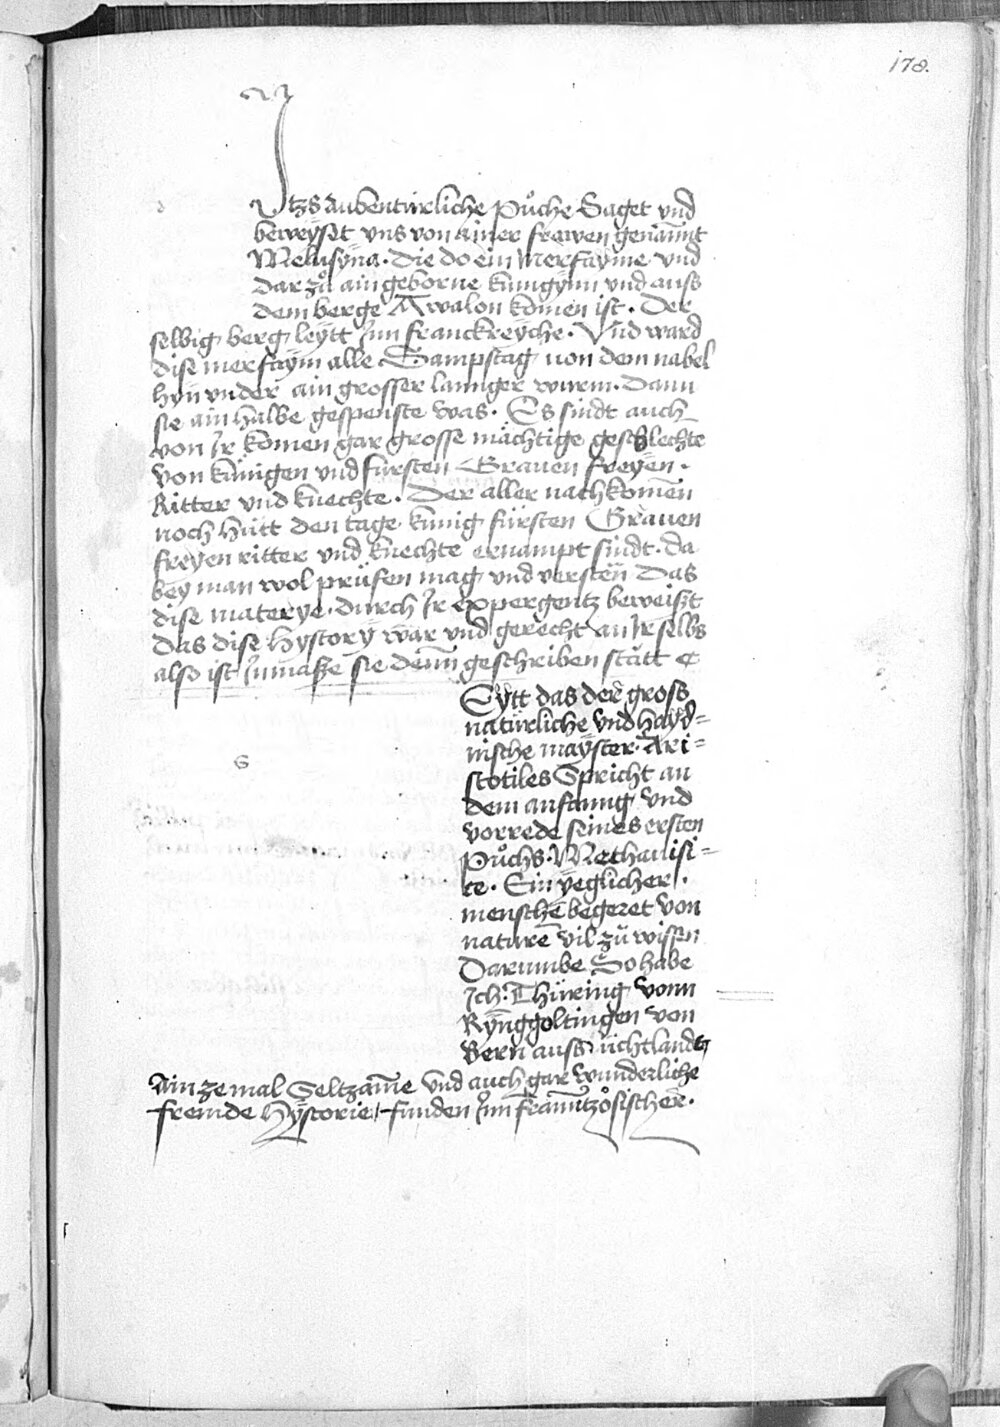 178.
Itzs aubentürliche Půche Saget vnd
beweÿset vns von ainer frawen genannt
Melusÿna. die do ein Merfaÿme vnd
dar zů ain geborne künigÿnn vnd auss
dem berge Awalon komen ist. Der
selbig berg leÿtt Inn franckreÿche. Vnd ward
dise merfaÿm alle Sampstag von dem nabel
hÿn vnder ain grosser lannger wurm. Dann
sie ain halbe gespenste was. Es sindt auch
von Ir komen gar grosse mächtige geschlechte
von künigen vnd fürsten Grauen freÿen.
Ritter vnd knechte. Der aller nachkomen̄
noch hütt den tage künig fürsten Grauen
freÿen ritter vnd knechte ernampt sindt. da
beÿ man wol prüfen mag vnd versten̄ Das
dise materye. durch Ir expergentz beweißt
Das dise hÿstorÿ war vnd gerecht an Ir selbs
also ist Inmaße sie denn̄ geschriben stätt
S
Sÿtt das der gross
natürliche vnd haÿd=
nische maÿster. Ari=
stotiles Spricht an
dem anfanng vnd
vorrede seines ersten
Půchs. Methauisi=
ce. Ein ÿeglicher.
mensche begeret von
nature vil zů wissen
Darumbe So habe
Ich. Thüring vonn
Rÿnggoltingen von
Bern auss üchtlande
Ain zemal Seltzam̄e vnd auch gar wunderliche
fremde hÿstorie funden Inn frann̄tzösischer.